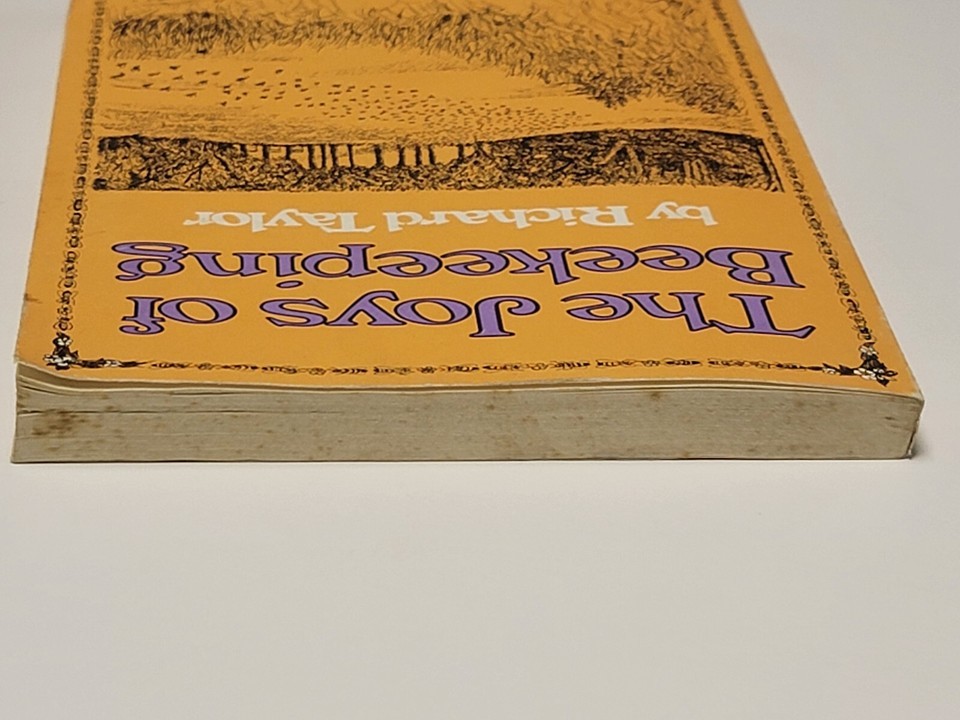 The Joys of
Beekeeping
by Richard Taylor